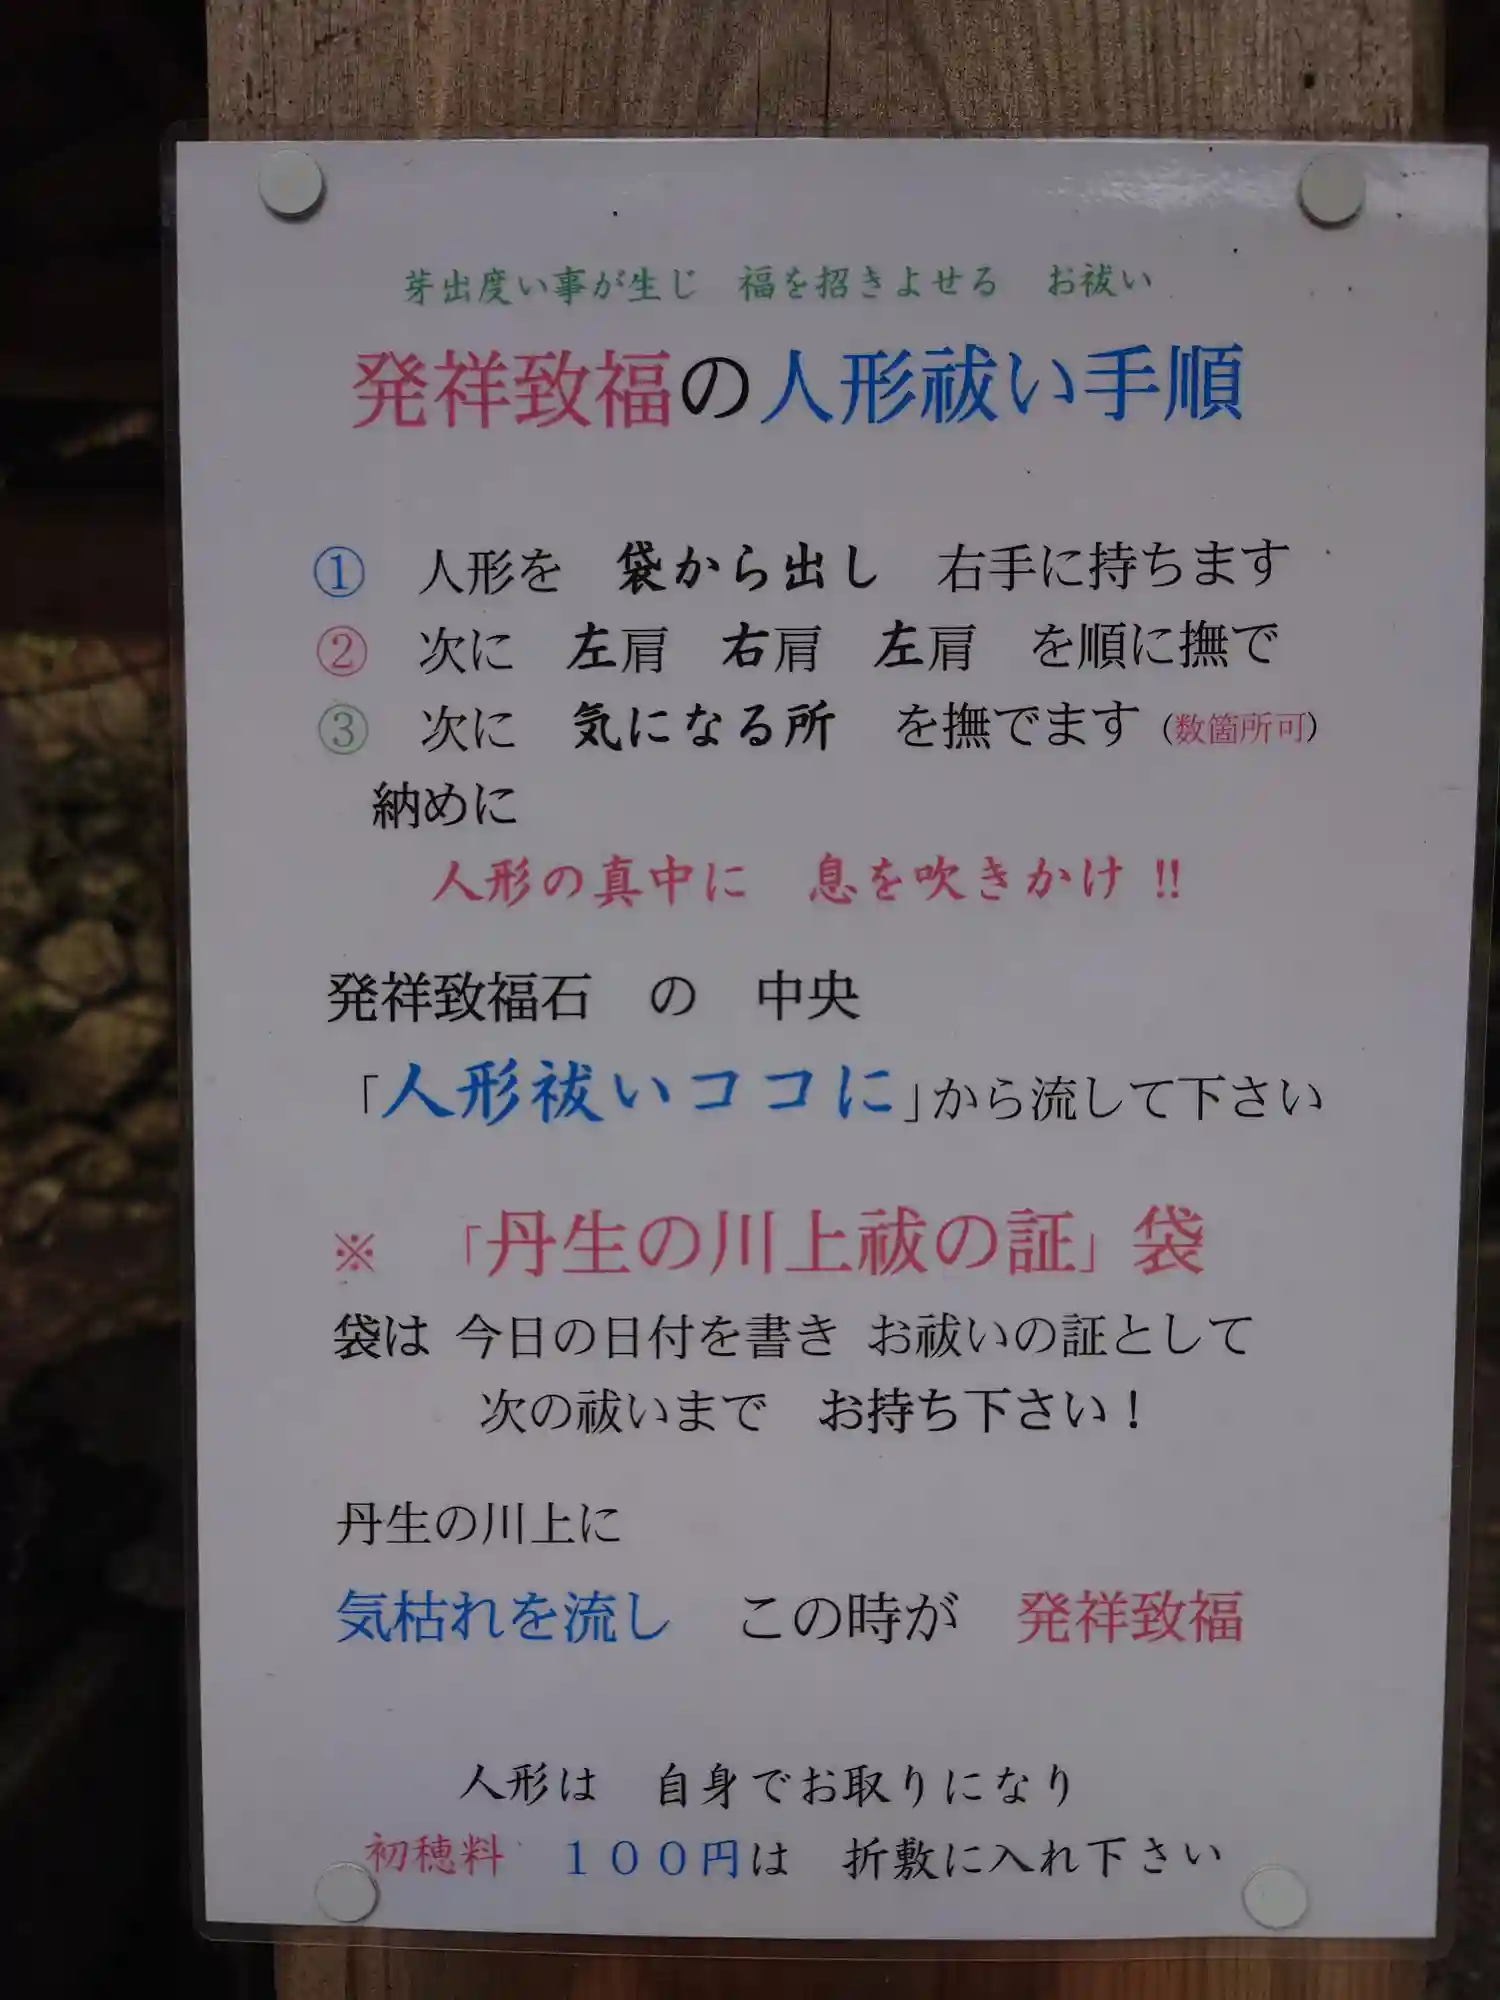 芽出度い事が生じ　福を招きよせる　お祓い
発祥致福の人形祓い手順
①　人形を　袋から出し　右手に持ちます
②　次に　左肩　右肩　左肩　を順に撫で
③　次に　気になる所　を撫でます（数箇所可）
納めに
人形の真中に　息を吹きかけ !!
発祥致福石　の　中央
「人形祓いココに」から流して下さい
※　「丹生の川上祓の証」袋
袋は 今日の日付を書き お祓いの証として
次の祓いまで　お持ち下さい！
丹生の川上に
気枯れを流し　この時が　発祥致福
人形は　自身でお取りになり
初穂料　１００円は　折敷に入れ下さい